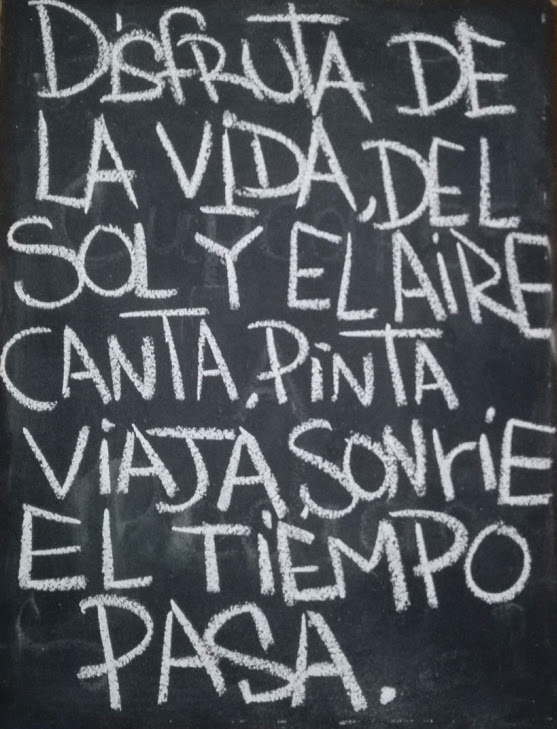 DiSFRUTA DE
LA ViDA, DEL
SOL Y EL AiRE
CANTA, PiNTA
ViAJA, SONriE
EL TiEMPO
PASA.